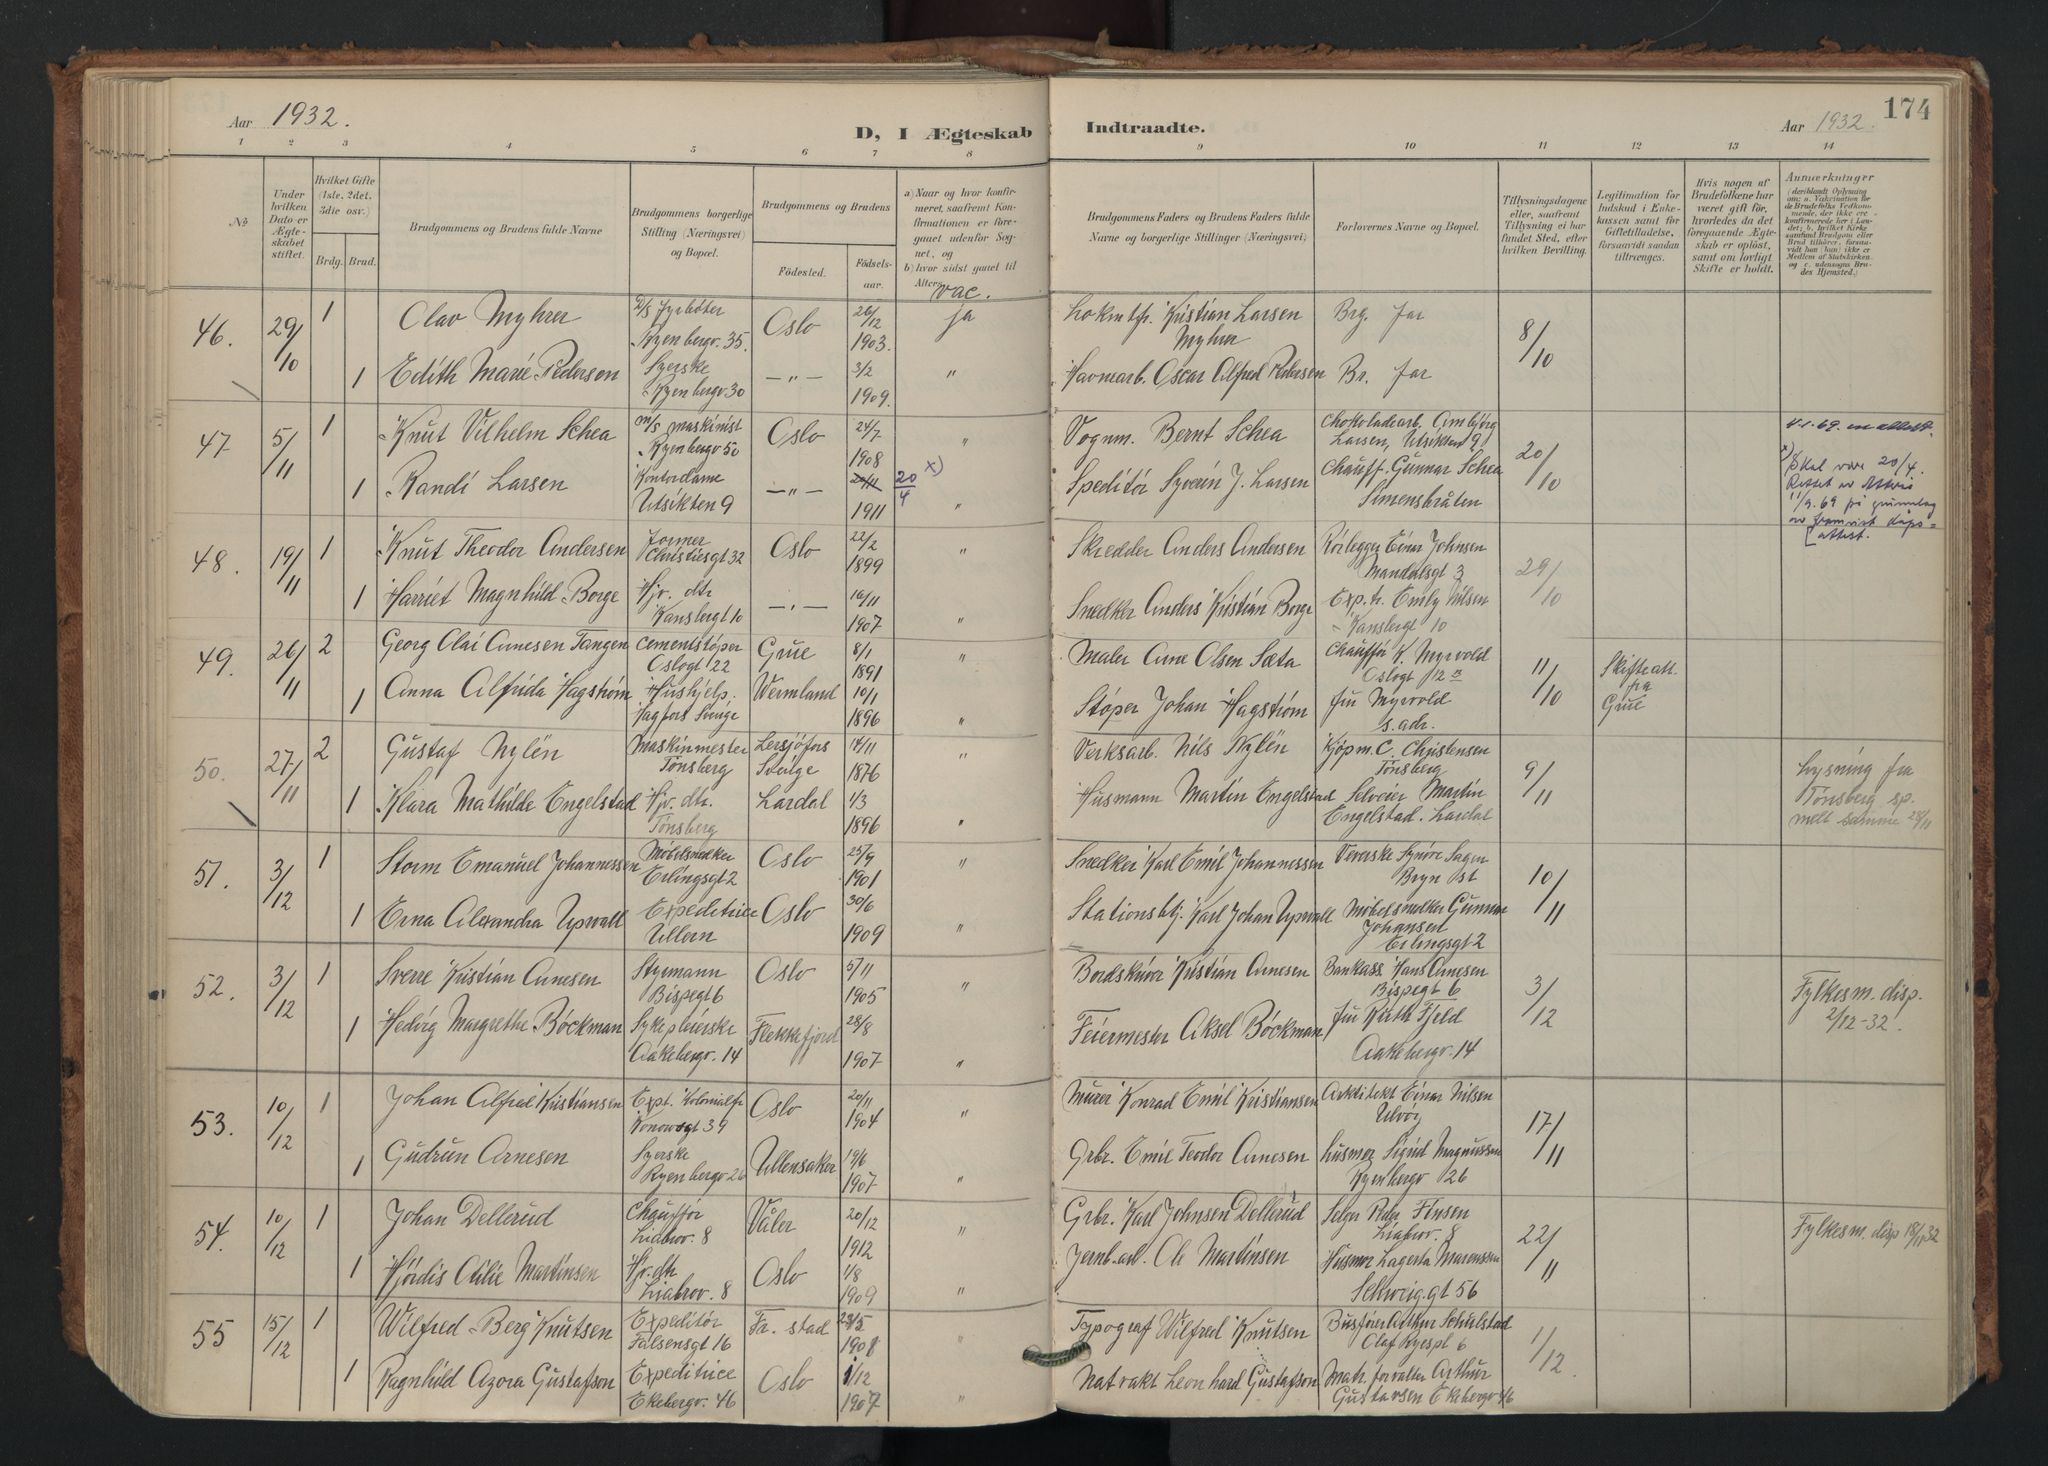 Aar 1932.
D, I Ægteskab
Indtraadte.
Aar 1932.
174
1 2 3 4 5 6 7 8 9 10 11 12 13 14
No
Under
hvilken
Dato er
Ægte-
skabet
stiftet.
Hvilket Gifte
(1ste, 2det,
3die osv.)
Brdg. Brud.
Brudgommens og Brudens fulde Navne
Brudgommens borgerlige
Stilling (Næringsvei)
og Bopæl.
Brudgommens og Brudens
Födested.
Födsels-
aar.
a) Naar og hvor konfir-
meret, saafremt Kon-
firmationen er fore-
gaaet udenfor Sog-
net, og
b) hvor sidst gaaet til
Alters.
vac.
Brudgommens Faders og Brudens Faders fulde
Navne og borgerlige Stillinger (Næringsvei)
Forlovernes Navne og Bopæl.
Tillysningsdagene
eller, saafremt
Tillysning ei har
fundet Sted, efter
hvilken Bevilling.
Legitimation for
Indskud i Enke-
kassen samt for
Giftetilladelse,
forsaavidt saadan
tiltrænges.
Hvis nogen af
Brudefolkene har
været gift før,
hvorledes da det
foregaaende Ægte-
skab er oplöst,
samt om lovligt
Skifte er holdt.
Anmerkninger
46. 29/10 1 Olav Myhrer Fyrbøter Ryenbergv. 35. Oslo 26/12 1903. ja Kristian Larsen Myhrer Brg. far 8/10
1 Edith Marie Pedersen Syerske Ryenbergv 30 —"— 3/2 1909. " Havnearb. Oscar Alfred Pedersen Br. far
47 5/11 1 Knut Vilhelm Schea m/s maskinist Ryenbergv 50 Oslo 24/7 1908 " Vognm. Bernt Schea Chokoladearb. Larsen, Utsikten 9 20/10
1 Randi Larsen Kontordame Utsikten 9 —"— 20/11 1911 20/4 x) " Speditør Syverin J. Larsen Chauff. Gunnar Schea Simensbråten
x) Skal være 20/4.
Rettet
11/9.69 på grunnlag
av fremvist dåps=
attest.
48. 19/11 1 Knut Theodor Andersen Former Christiesgt 32 Oslo 22/2 1899 " Skredder Anders Andersen Rørlegger Einar Johnsen Mandalsgt 3 29/10
1 Harriet Magnhild Borge Hjv. dtr. Kansbergt 10 —"— 1907 " Snedker Anders Kristian Borge Exp.tr. Emily Nilsen Kansbergt 10
49. 26/11 2 Georg Olai Arnesen Tangen Cementstøper Oslogt 22 Grue 8/1 1891 " Maler Arne Olsen Sæta Chauffør K. Myrvold Oslogt 12 11/10 Skifteatt. fra Grue
1 Anna Alfrida Hagstrøm Hushjelp. Hagfors Sverige Wermland 10/1 1896 " Støper Johan Hagstrøm Fru Myrvold s. adr.
50. 27/11 2 Gustaf Nylén Maskinmester Tønsberg Lersjöfors Sverige 14/11 1876 " Verksarb. Nils Nylén Kjøpm. C. Christensen Tønsberg 9/11 Lysning fra Tønsberg sp. melt samme 28/11
1 Klara Mathilde Engelstad Hjv. dtr. Tønsberg Lardal 1/3 1896 " Husmann Martin Engelstad Selveier Martin Engelstad. Lardal
51. 3/12 1 Storm Emanuel Johannessen Møbelsnedker Erlingsgt 2 Oslo 25/9 1901 " Snedker Karl Emil Johannessen Veverske Synøve Sagen Bryn st 10/11
1 Erna Alexandra Upvall Expeditrice Ullern Oslo 30/6 1909 " Stationsbtj. Karl Johan Upvall Møbelsnedker Gunnar Johansen Erlingsgt 2
52. 3/12 1 Sverre Kristian Arnesen Styrmann Bispegt 6 Oslo 5/11 1905 " Bordskriver Kristian Arnesen Bankass. Hans Arnesen Bispegt 6 3/12 Fylkesm. disp. 2/12-32.
1 Hedvig Margrethe Böckman Sykepleierske Aakebergv. 14 Flekkefjord 28/8 1907 " Feiermester Aksel Böckman Fru Ruth Fjeld Aakebergv. 14
53. 10/12 1 Johan Alfred Kristiansen Expt. Kolonialfr. Konowsgt 39 Oslo 20/11 1904 " Murer Konrad Emil Kristiansen Arkitekt Einar Nilsen Ulvøy 17/11
1 Gudrun Arnesen Syerske Ryenbergv 26 Ullensaker 19/6 1907 " Grbr. Emil Teodor Arnesen Husmor Sigrid Magnussen Ryenbergv 26
54. 10/12 1 Johan Dellerud Chauffør Liabrov. 8 Våler 20/12 1912 " Grbr. Karl Johnsen Dellerud Selger Finsen Liabrov. 8 22/11 Fylkesm. disp 18/11 32
1 Hjördis Otilie Martinsen Hjv. dtr. Liabrov. 8 Oslo 1/8 1909 " Jernb.arb. Ole Martinsen Husmor Lagerta Martinsen Schweig.gt 56
55 15/12 1 Wilfred Berg Knutsen Expeditör Falsensgt 16 Fr. stad 23/5 1908 " Typograf Wilfred Knutsen Busfører Arthur Schulstad Olaf Ryespl 6 1/12
1 Ragnhild Azora Gustafson Expeditrice Ekebergv. 46 Oslo 1/12 1907 " Natvakt Leonhard Gustafson Mat. forvalter Arthur Gustavsen Ekebergv 46